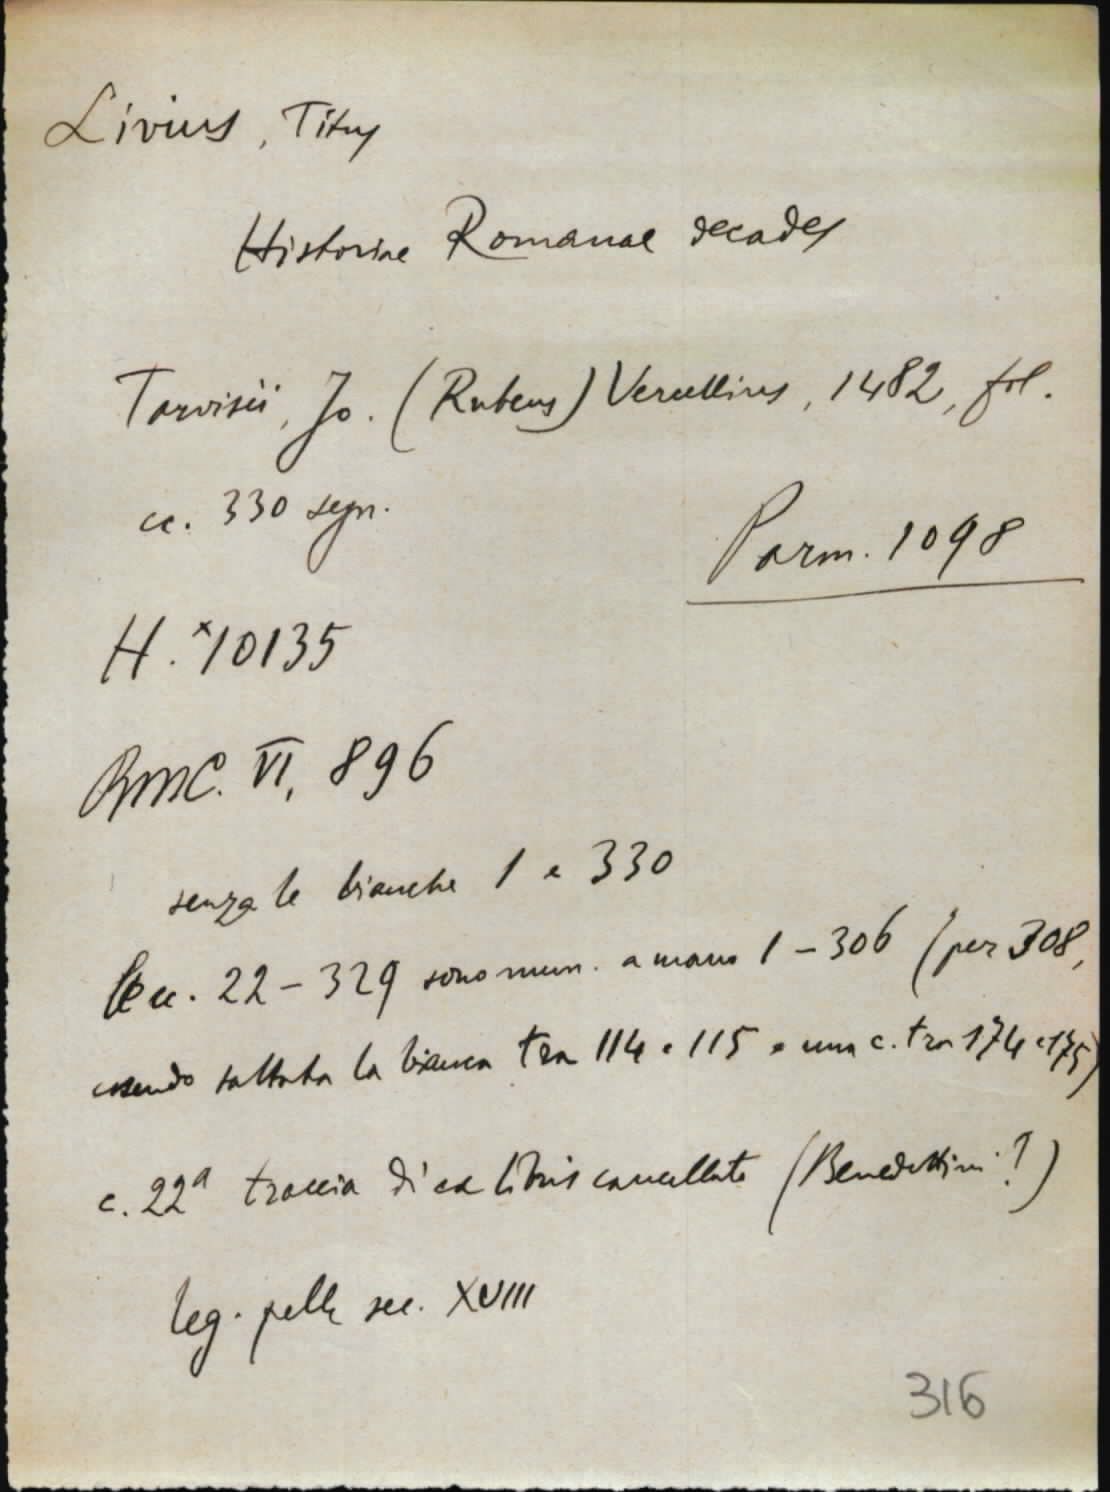 Livius, Titus
Historiae Romanae decades
Tarvisii, Jo. (Rubeus) Vercellius, 1482, fol.
cc. 330 segn.
Parm. 1098
H. *10135
BMC. VI, 896
senza le bianche 1 e 330
le cc. 22-329 sono num. a mano 1-306 (per 308,
essendo saltata la bianca tra 114 e 115 e una c. tra 174 e 175)
c. 22a traccia di ex libris cancellato (Benedettini?)
leg. pelle sec. XVIII
316